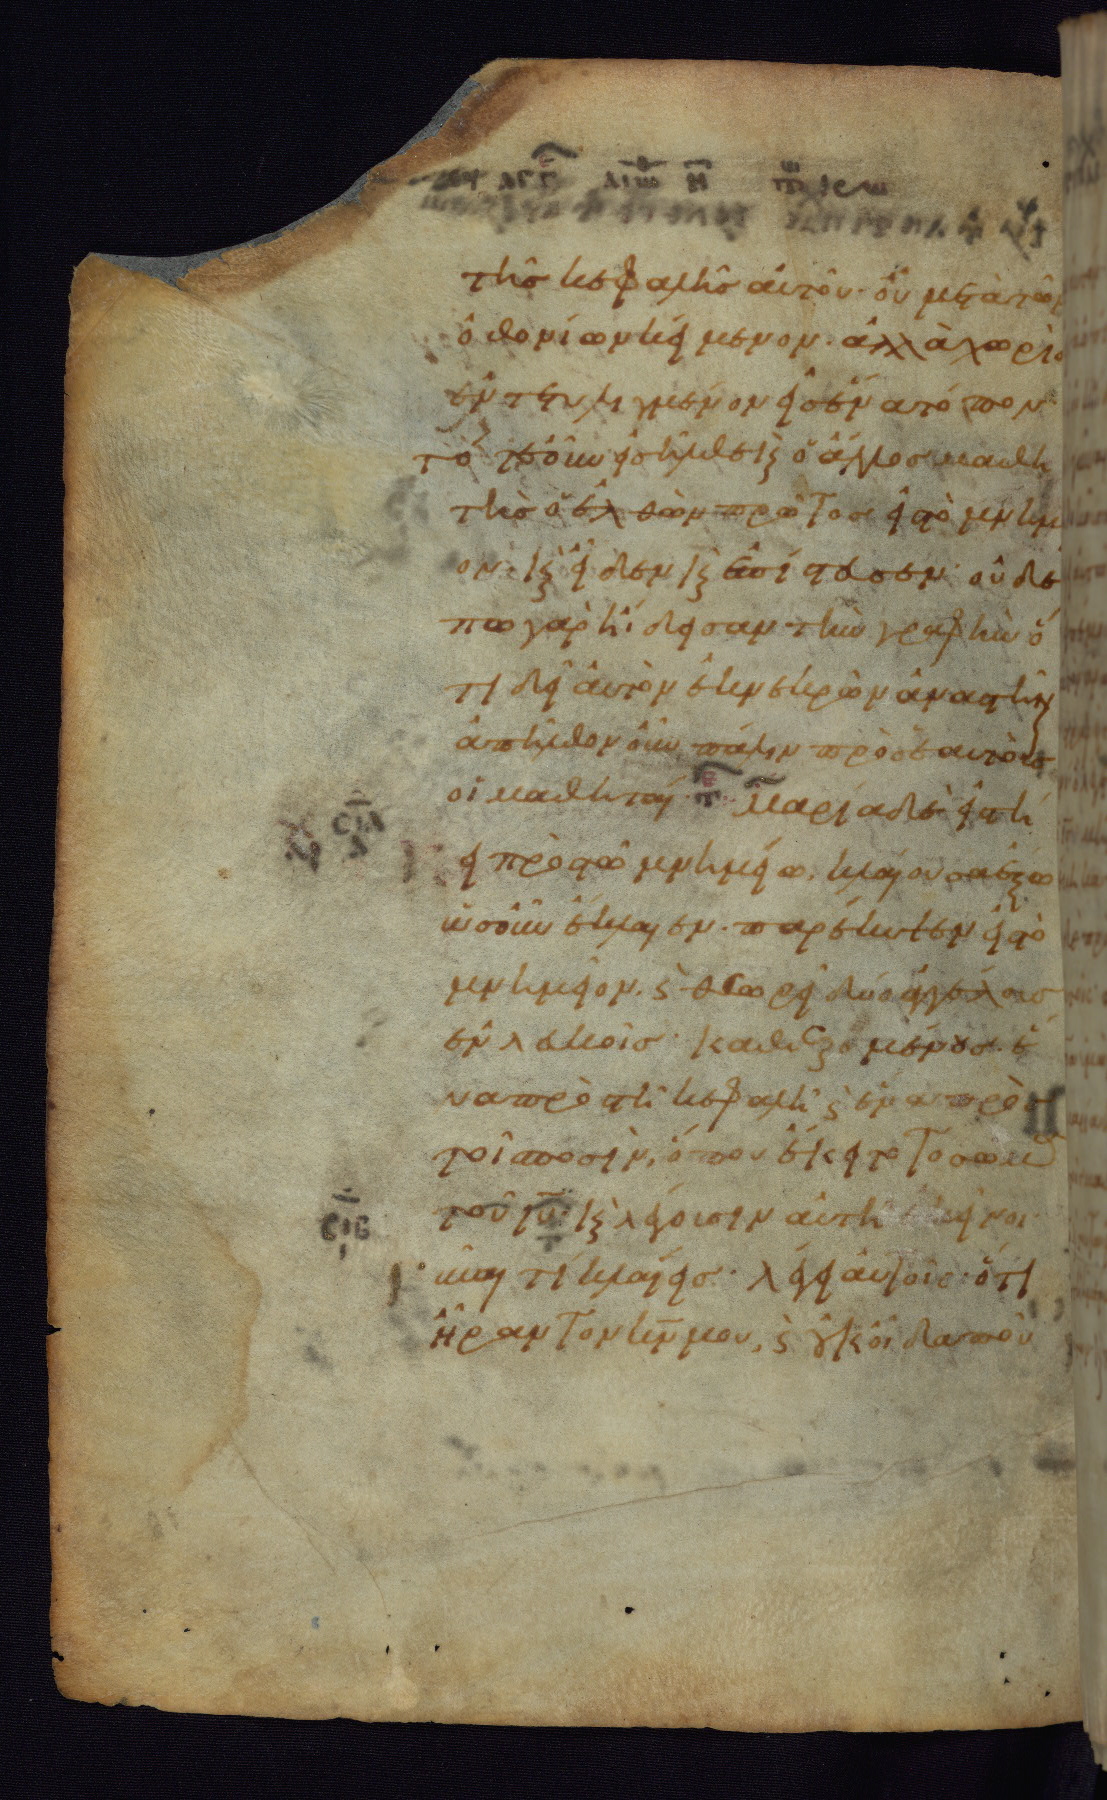 τῆς κεφαλῆς αὐτοῦ· οὐ μετὰ τῶν
ὀθονίων κείμενον· ἀλλὰ χωρὶς
ἐντετυλιγμένον εἰς ἕνα τόπον·
τότε οὖν εἰσῆλθε κ(αὶ) ὁ ἄλλος μαθη
τὴς ὁ ἐλθὼν πρῶτος εἰς τὸ μνημεῖ
ον· κ(αὶ) εἶδεν κ(αὶ) ἐπίστευσεν· οὐδέ
πω γὰρ ᾔδεισαν τὴν γραφὴν ὅ
τι δεῖ αὐτὸν ἐκ νεκρῶν ἀναστῆν(αι)
ἀπῆλθον οὖν πάλιν πρὸς ἑαυτοὺς
οἱ μαθηταί· Μαρία δὲ εἱστή
κει πρὸς τῷ μνημείῳ, κλαίουσα ἔξω
ὡς οὖν ἔκλαιεν· παρέκυψεν εἰς τὸ
μνημεῖον, κ(αὶ) θεωρεῖ δύο ἀγγέλους
ἐν λευκοῖς· καθεζομένους· ἕ
να πρὸς τῆ κεφαλῆ κ(αὶ) ἕνα πρὸς
τοῖ ποσὶν, ὅπου ἔκειτο τὸ σῶμα
τοῦ ιυ· κ(αὶ) λέγουσιν αὐτῆ ἐκεῖνοι·
γύναι τί κλαίεις· λέγει αὐτοῖς· ὅτι
ἦραν τὸν κν μου, κ(αὶ) οὐκ οἶδα ποῦ
σια
σιβ